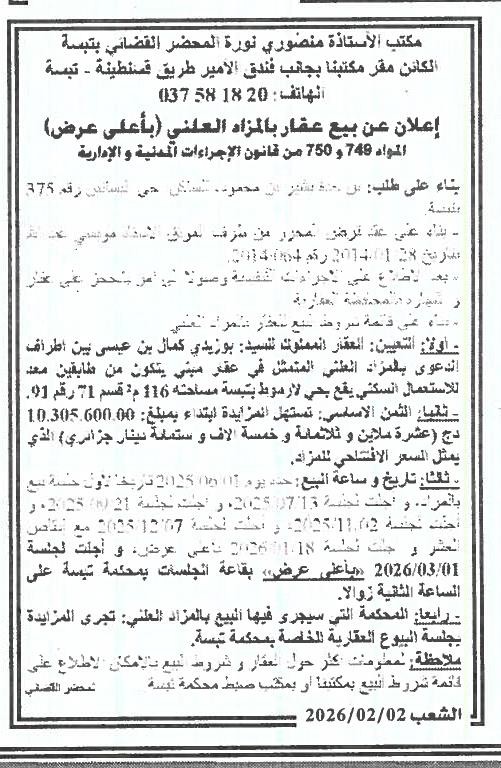 مكتب الأستاذة منصوري نورة المحضر القضائي بتبسة
الكائن مقر مكتبنا بجانب فندق الأمير طريق قسنطينة - تبسة
الهاتف: 20 18 58 037
إعلان عن بيع عقار بالمزاد العلني (بأعلى عرض)
المواد 749 و 750 من قانون الإجراءات المدنية و الإدارية
بناء على طلب: بن بشير بن محمود، الساكن حي رقم 375
بتبسة
- بناء على عقد قرض المحرر من طرف الموثق الأستاذ موسي
بتاريخ 2014/01/28 رقم 2014/064.
- بعد الاطلاع على الإجراءات و أمر بالحجز على عقار
و بالمحافظة العقارية
- بناء على قائمة شروط البيع للعقار بالمزاد العلني
- أولا: التعيين: العقار المملوك للسيد: بوزيدي كمال بن عيسى بين أطراف
الدعوى بالمزاد العلني المتمثل في عقار مبني يتكون من طابقين معد
للاستعمال السكني يقع بحي لارموط بتبسة مساحته 116 م² قسم 71 رقم 91.
- ثانيا: الثمن الأساسي: تستهل المزايدة ابتداء بمبلغ: 10.305.600.00
دج (عشرة ملاين و ثلاثمائة و خمسة آلاف و ستمائة دينار جزائري) الذي
يمثل السعر الافتتاحي للمزاد.
- ثالثا: تاريخ و ساعة البيع: حدد يوم 2025/06/01 تاريخا لأول جلسة بيع
بالمزاد، و أجلت لجلسة 2025/07/13، و أجلت لجلسة 2025/09/21، و
أجلت لجلسة 2025/11/02، و أجلت لجلسة 2025/12/07 مع إنقاص
العشر و أجلت لجلسة 2026/01/18 بأعلى عرض، و أجلت لجلسة
2026/03/01 «بأعلى عرض» بقاعة الجلسات بمحكمة تبسة على
الساعة الثانية زوالا.
- رابعا: المحكمة التي سيجرى فيها البيع بالمزاد العلني: تجرى المزايدة
بجلسة البيوع العقارية الخاصة بمحكمة تبسة.
ملاحظة: لمعلومات أكثر حول العقار و شروط البيع بالإمكان الاطلاع على
قائمة شروط البيع بمكتبنا أو بمكتب ضبط محكمة تبسة المحضر القضائي
الشعب 2026/02/02